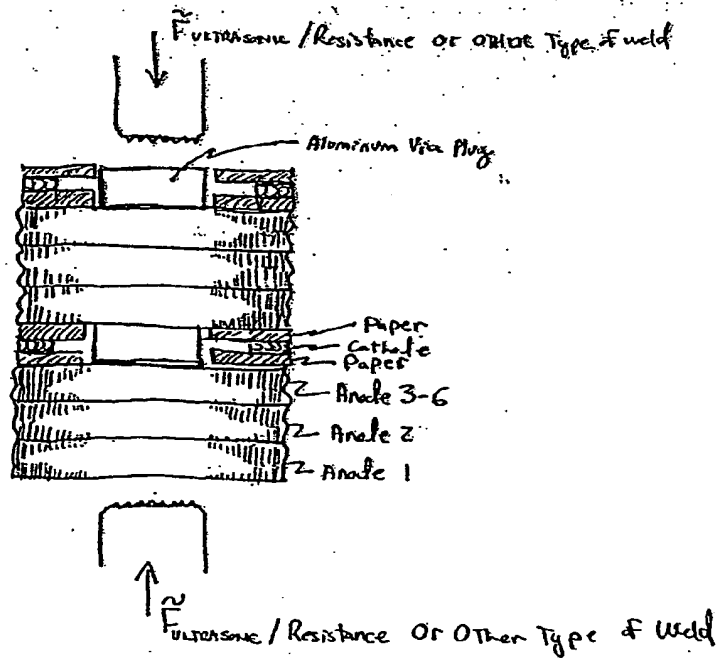 F̃ULTRASONIC / Resistance or OTHER Type of weld
Aluminum Via Plug
Paper
Cathode
Paper
Anode 3-6
Anode 2
Anode 1
F̃ULTRASONIC / Resistance or OTher Type of Weld